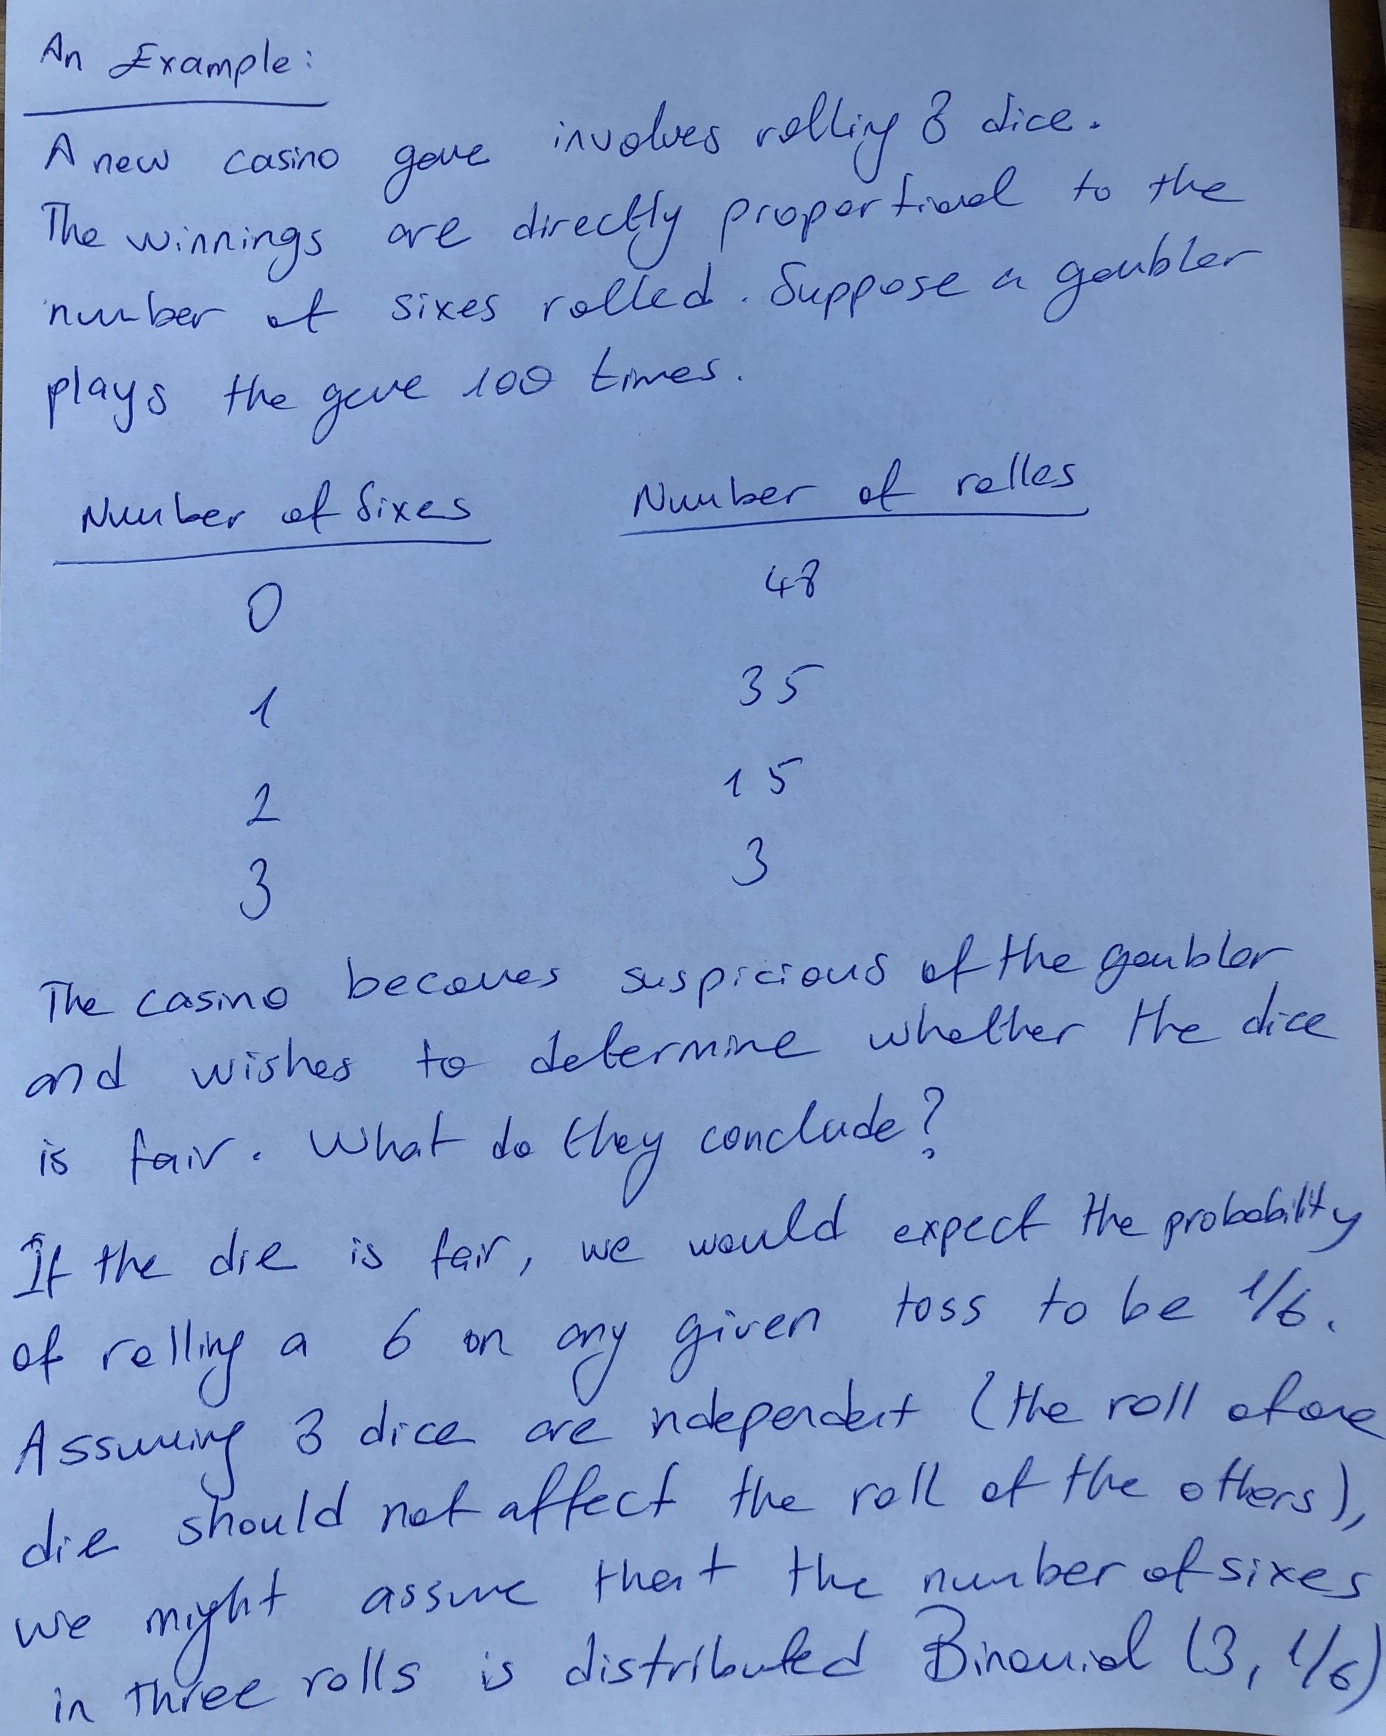 An Example:
A new casino game involves rolling 3 dice.
The winnings are directly proportional to the
number of sixes rolled. Suppose a gambler
plays the game 100 times.
Number of Sixes Number of rolles
0 48
1 35
2 15
3 3
The casino becomes suspicious of the gambler
and wishes to determine whether the dice
is fair. What do they conclude?
If the die is fair, we would expect the probability
of rolling a 6 on any given toss to be 1/6.
Assuming 3 dice are independent (the roll of one
die should not affect the roll of the others),
we might assume that the number of sixes
in three rolls is distributed Binomial (3, 1/6)